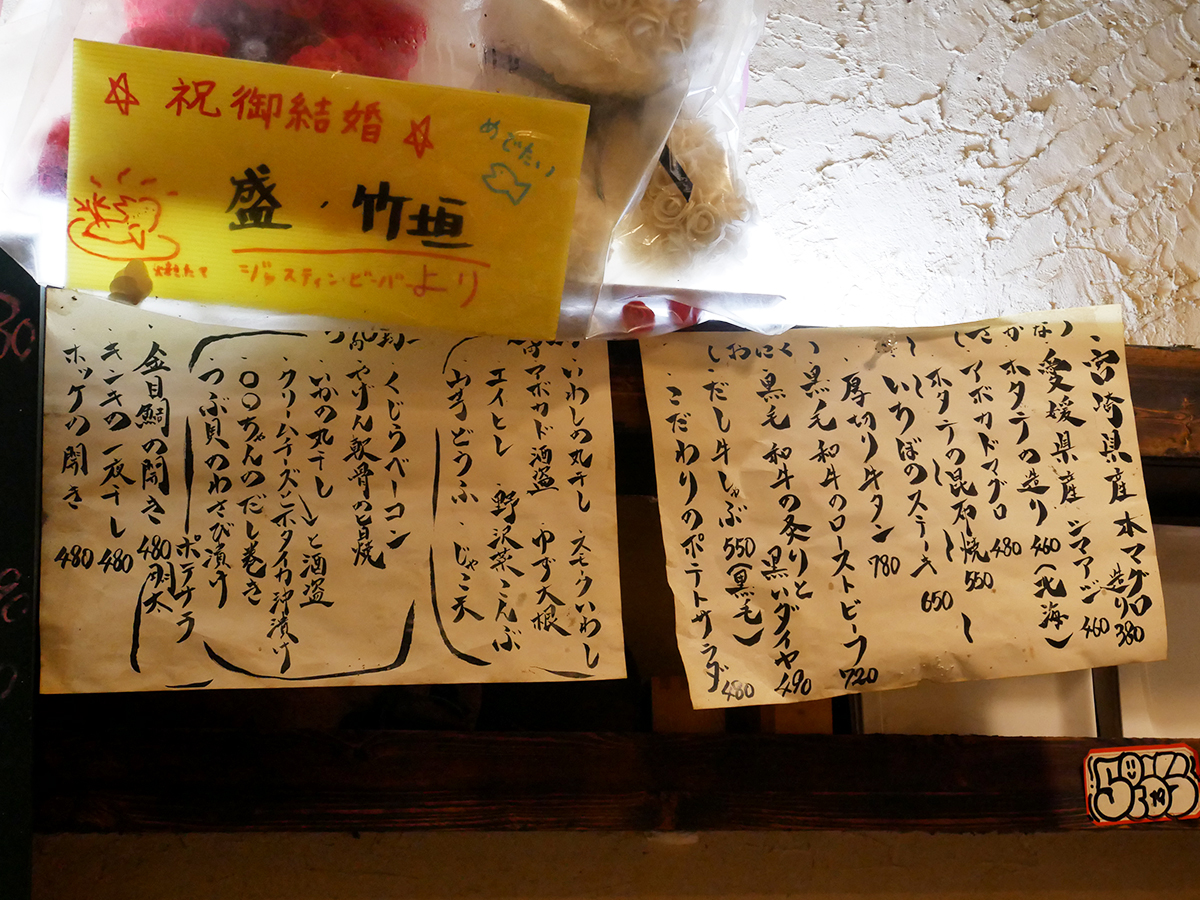 祝御結婚
めでたい
盛・竹垣
焼きたて
ジャスティン・ビーバーより
さかな
・宮崎県産 本マグロ 造り 380
愛媛県産 シマアジ 460
ホタテの造り 460 (北海)
アボカドマグロ 480
ホタテの昆布焼 550
いちぼのステーキ 650
厚切り牛タン 780
黒毛和牛のローストビーフ 720
おにく
・黒毛和牛の炙りと黒いダイヤ 490
・だし牛しゃぶ 550 (黒毛)
・こだわりのポテトサラダ 480
・いわしの丸干し スモークいわし
アボカド酒盗 ゆず大根
エイヒレ 野沢菜こんぶ
山芋どうふ ・じゃこ天
・くじらベーコン
やげん軟骨の旨焼
・いかの丸干し
と酒盗
・クリームチーズとホタルイカ沖漬け
・〇〇ちゃんのだし巻き
・つぶ貝のわさび漬け
ポテサラ
・金目鯛の開き 480
・キンキの一夜干し 480
ホッケの開き 480